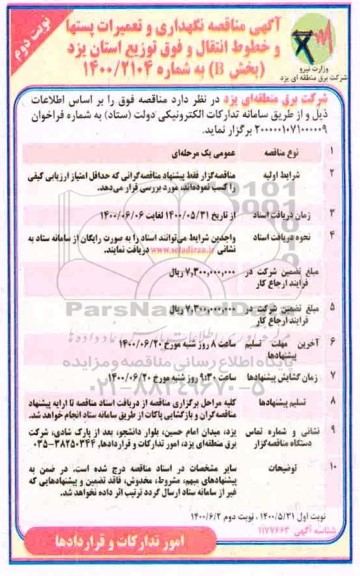 نوبت دوم
آگهی مناقصه نگهداری و تعمیرات پستها
و خطوط انتقال و فوق توزیع استان یزد
(بخش B) به شماره ۱۴۰۰/۲۱۰۴
وزارت نیرو
شرکت برق منطقه ای یزد
شرکت برق منطقه‌ای یزد در نظر دارد مناقصه فوق را بر اساس اطلاعات
ذیل و از طریق سامانه تدارکات الکترونیکی دولت (ستاد) به شماره فراخوان
۲۰۰۰۰۰۱۰۷۱۰۰۰۰۰۹ برگزار نماید.
۱ نوع مناقصه عمومی یک مرحله‌ای
۲ شرایط اولیه مناقصه‌گزار فقط پیشنهاد مناقصه‌گرانی که حداقل امتیاز ارزیابی کیفی
را کسب نموده‌اند، مورد بررسی قرار می‌دهد.
۳ زمان دریافت اسناد از تاریخ ۱۴۰۰/۰۵/۳۱ لغایت ۱۴۰۰/۰۶/۰۶
۴ نحوه دریافت اسناد واجدین شرایط می‌توانند اسناد را به صورت رایگان از سامانه ستاد به
نشانی www.setadiran.ir دریافت نمایند.
مبلغ تضمین شرکت در فرایند ارجاع کار ۷,۳۰۰,۰۰۰,۰۰۰ ریال
۵ مبلغ تضمین شرکت در فرایند ارجاع کار ۷,۳۰۰,۰۰۰,۰۰۰ ریال
۶ آخرین مهلت تسلیم پیشنهادها ساعت ۸ روز شنبه مورخ ۱۴۰۰/۰۶/۲۰
۷ زمان گشایش پیشنهادها ساعت ۹:۳۰ روز شنبه مورخ ۱۴۰۰/۰۶/۲۰
۸ تسلیم پیشنهادها کلیه مراحل برگزاری مناقصه از دریافت اسناد مناقصه تا ارایه پیشنهاد
مناقصه‌گران و بازگشایی پاکات از طریق سامانه ستاد انجام خواهد شد.
۹ نشانی و شماره تماس دستگاه مناقصه‌گزار یزد، میدان امام حسین، بلوار دانشجو، بعد از پارک شادی، شرکت
برق منطقه‌ای یزد، امور تدارکات و قراردادها، ۳۸۲۵۰۳۴۴-۰۳۵
۱۰ توضیحات سایر مشخصات در اسناد مناقصه درج شده است. در ضمن به
پیشنهادهای مبهم، مشروط، مخدوش، فاقد تضمین و پیشنهادهایی که
غیر از سامانه ستاد ارسال گردد ترتیب اثر داده نخواهد شد.
نوبت اول ۱۴۰۰/۵/۳۱، نوبت دوم ۱۴۰۰/۶/۲
شناسه آگهی ۱۱۷۷۶۶۳
امور تدارکات و قراردادها
ParsNamadData
پایگاه اطلاع رسانی مناقصه و مزایده
۰۲۱-۸۸۳۴۹۶۷۰-۵